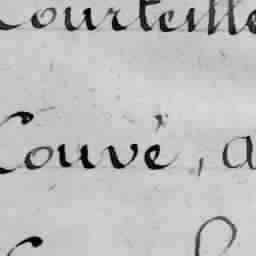 Courteille
Couvé, a